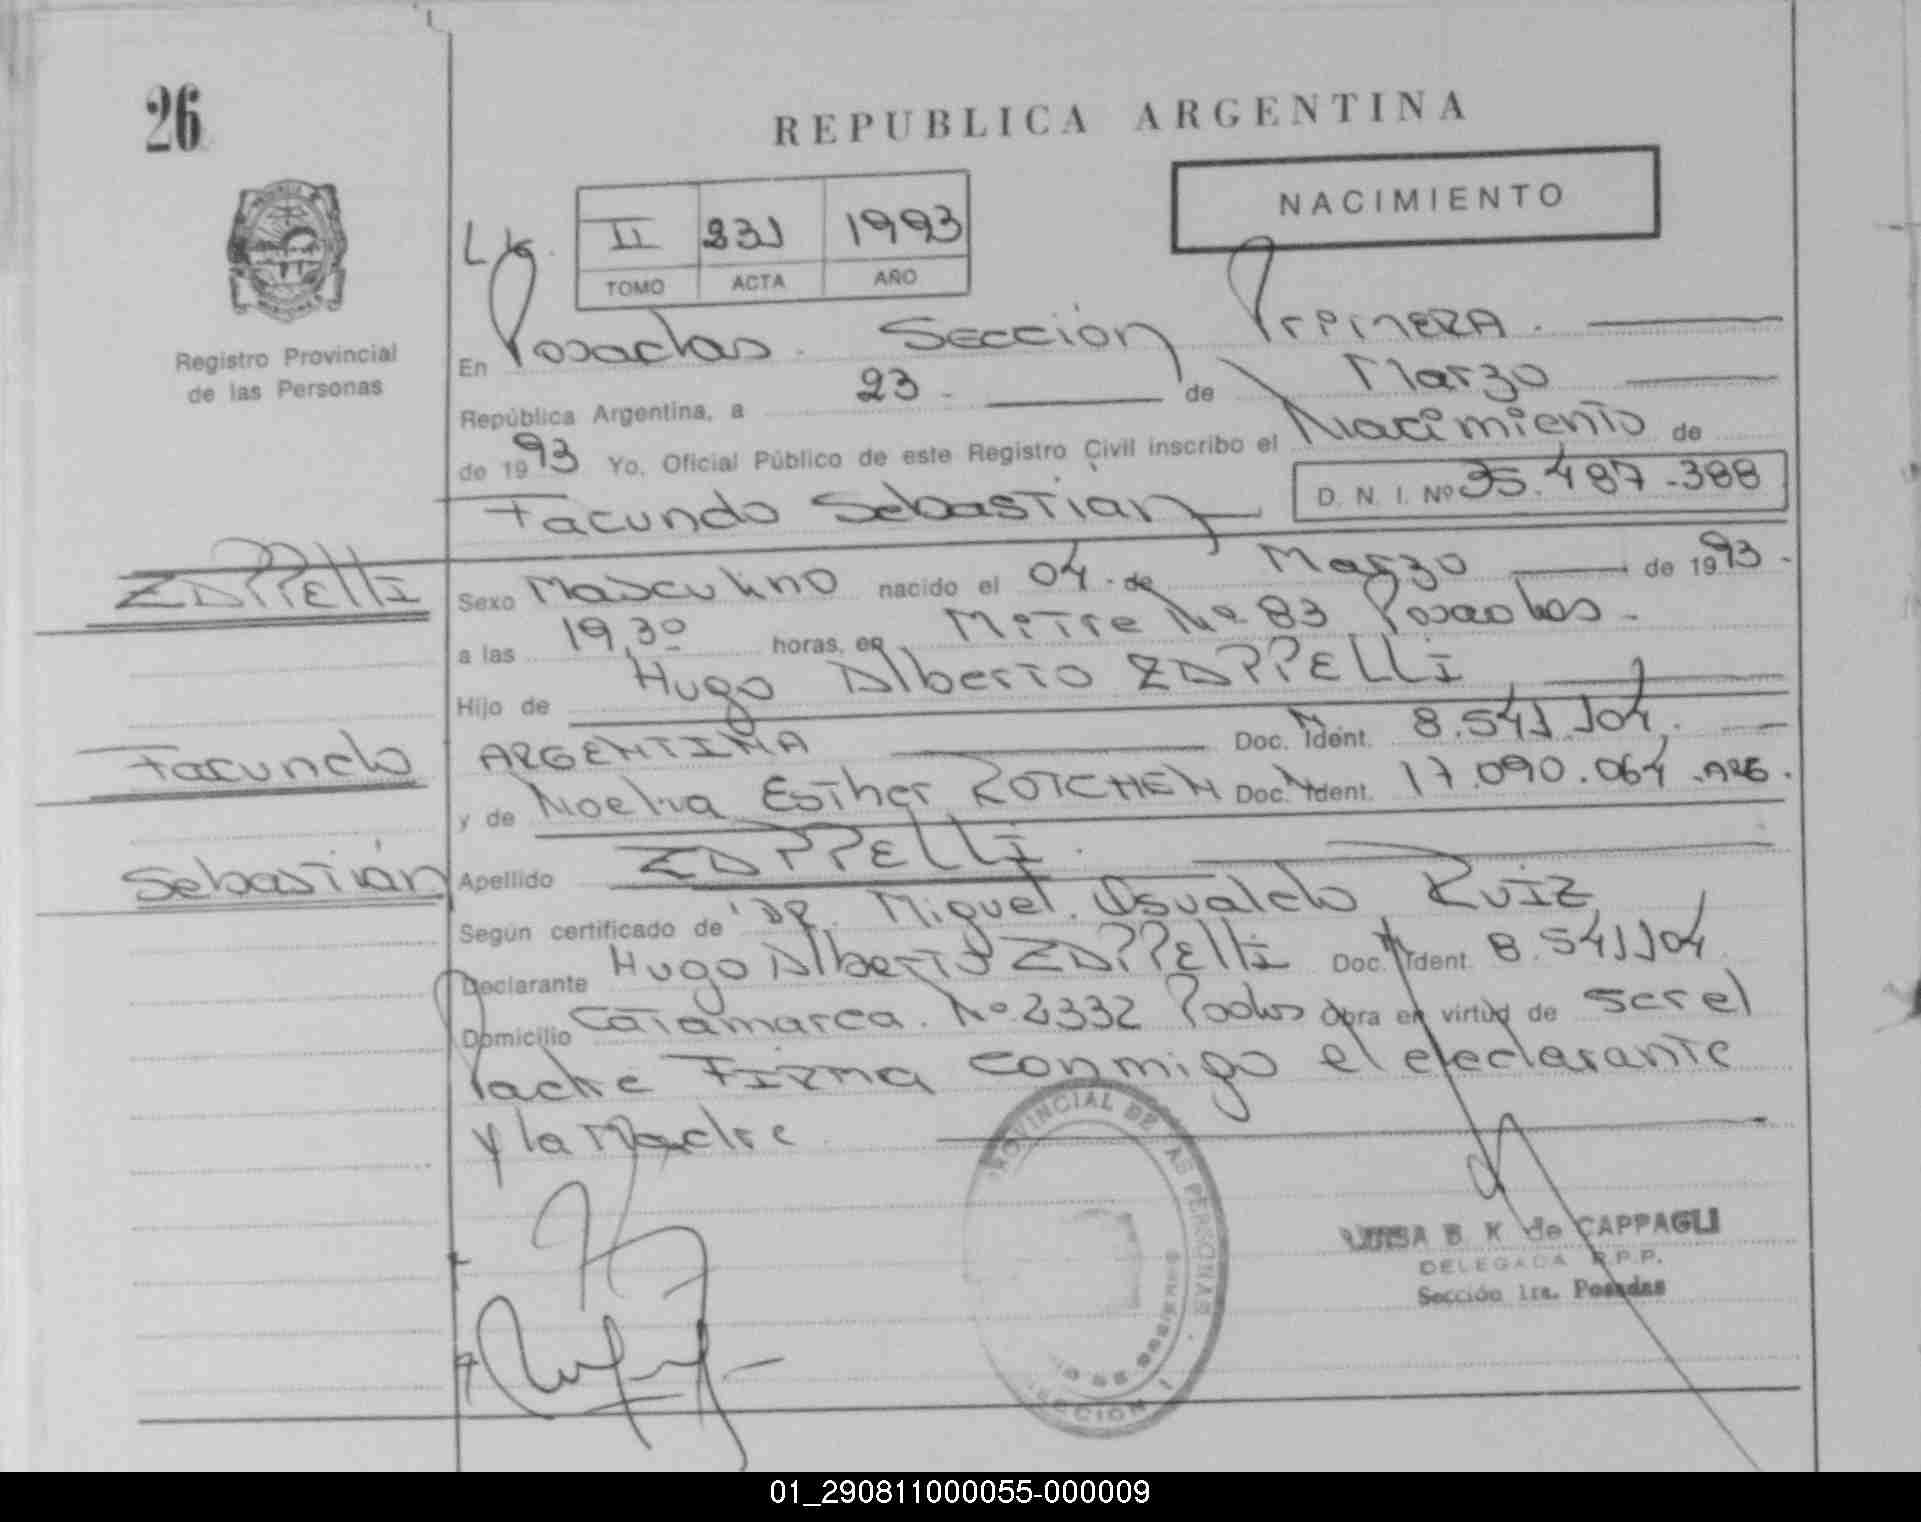 26
REPUBLICA ARGENTINA
NACIMIENTO
II 231 1993
TOMO ACTA AÑO
Registro Provincial
de las Personas
En Posadas. Sección Primera.
República Argentina, a 23 - de Marzo
de 1993 Yo, Oficial Público de este Registro Civil inscribo el Nacimiento de
Facundo Sebastián D. N. I. Nº 35.487.388
ZAPPELLI
Sexo Masculino nacido el 04 de Marzo de 1993 -
a las 19,30 horas, en Mitre Nº 83 Posadas -
Hijo de Hugo Alberto ZAPPELLI
ARGENTINA Doc. Ident. 8.541.104.
Facundo
y de Noelia Esther ROTCHEN Doc. Ident. 17.090.064 .ARG.
Sebastián
Apellido ZAPPELLI.
Según certificado de DR. Miguel Osvaldo Ruiz
Declarante Hugo Alberto ZAPPELLI Doc. Ident. 8.541104
Domicilio Catamarca. Nº 2332 Pdas Obra en virtud de ser el
Padre Firma conmigo el declarante
y la Madre
PROVINCIAL DE LAS PERSONAS
SECCION 1
B K de CAPPAGLI
DELEGADA R.P.P.
Sección 1ra. Posadas
01_290811000055-000009